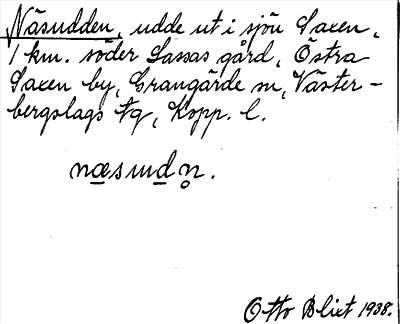 Näsudden, udde ut i sjön Saxen,
1 km. söder Lassas gård, Östra
Saxen by, Grangärde sn, Väster-
bergslags tg, Kopp. l.
næsudn̥.
Otto Blixt 1938.